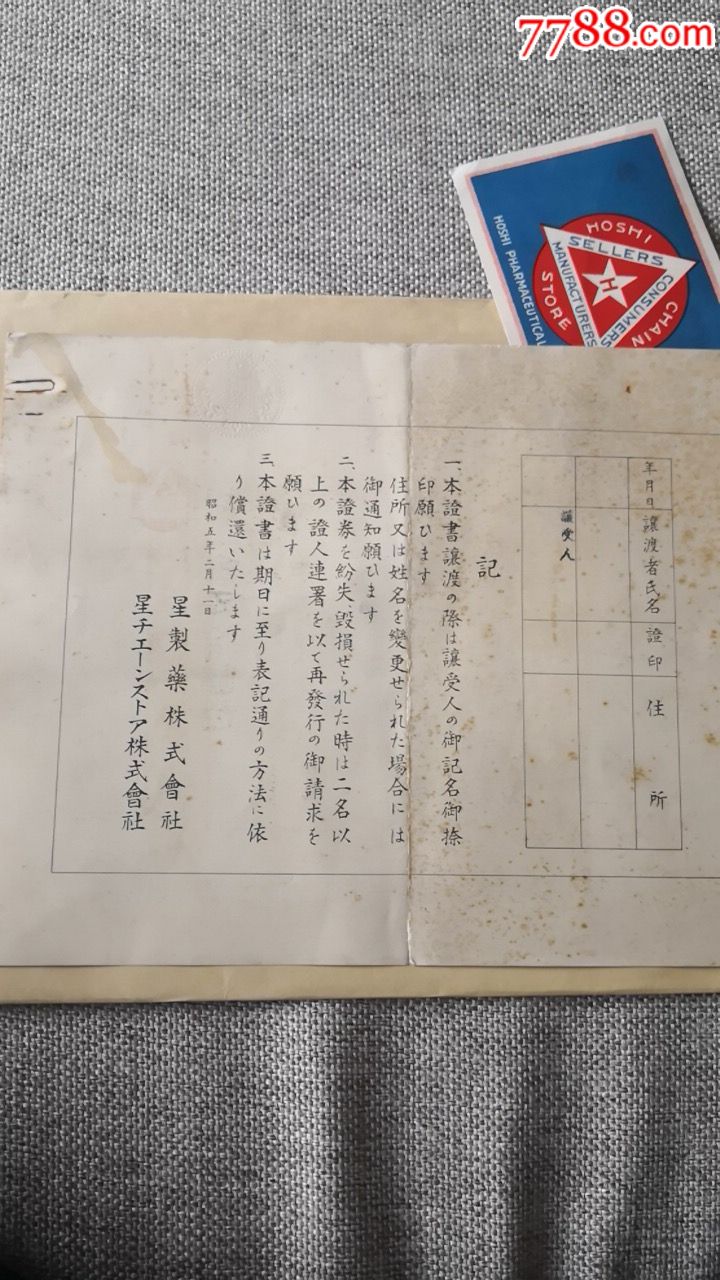 7788.com
HOSHI
CHAIN
STORE
SELLERS
CONSUMERS
MANUFACTURERS
H
HOSHI PHARMACEUTICAL
年月日
讓渡者氏名
證印
住所
讓受人
記
一、本證書讓渡の際は讓受人の御記名御捺
印願ひます
住所又は姓名を變更せられた場合には
御通知願ひます
二、本證券を紛失毀損せられた時は二名以
上の證人連署を以て再發行の御請求を
願ひます
三、本證書は期日に至り表記通りの方法に依
り償還いたします
昭和五年二月十一日
星製藥株式會社
星チエーンストア株式會社